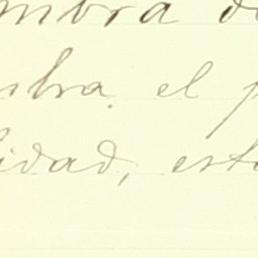 mbra d
mbra. el p
idad, est